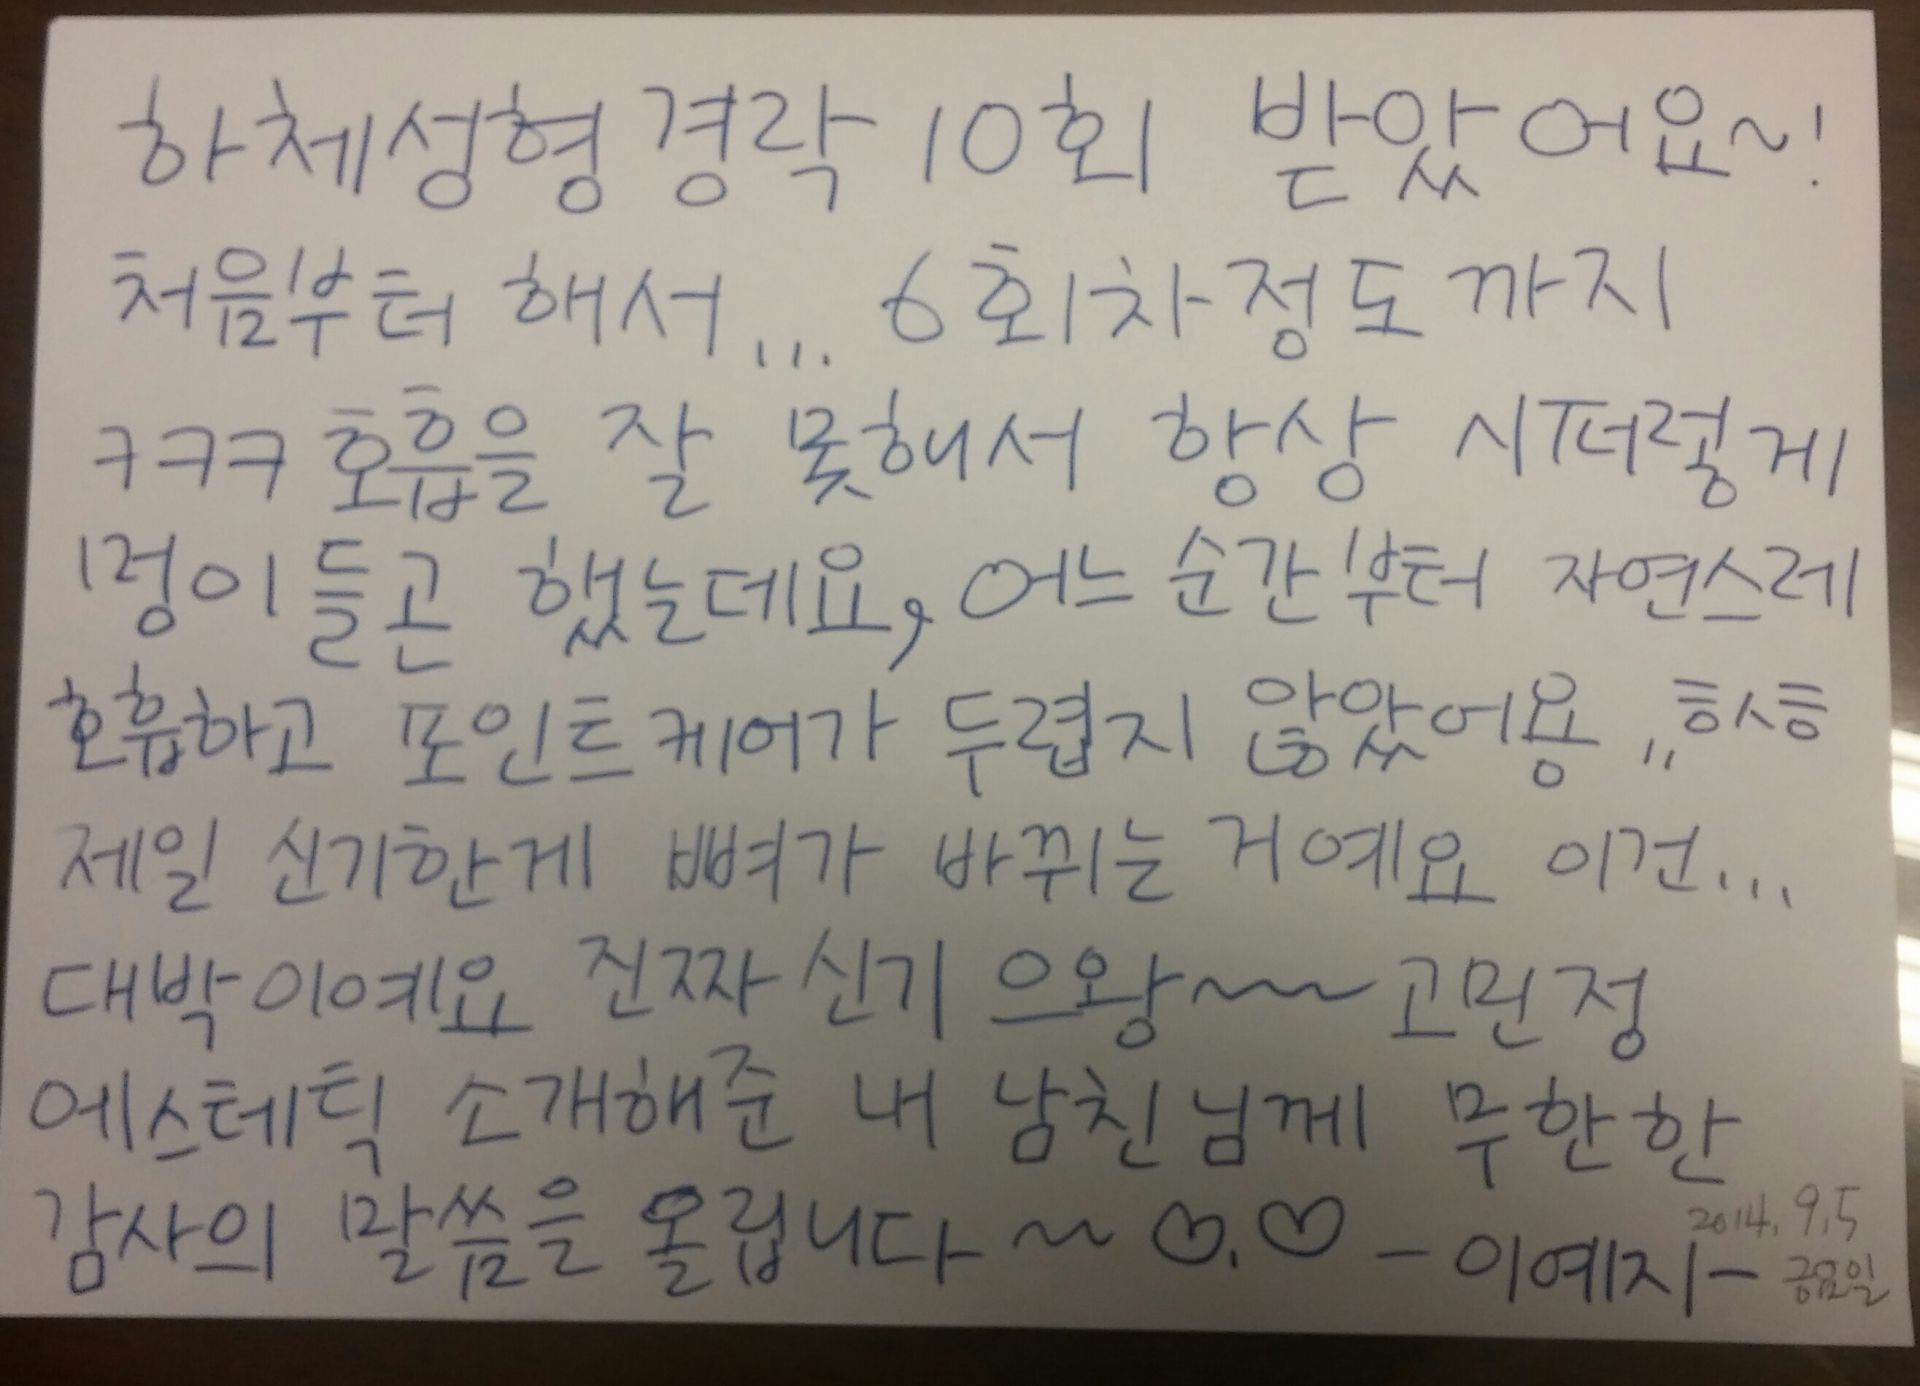 하체성형경락 10회 받았어요~!
처음부터 해서... 6회차정도까지
ㅋㅋㅋ 호흡을 잘 못해서 항상 시퍼렇게
멍이 들곤 했는데요, 어느 순간부터 자연스레
호흡하고 포인트케어가 두렵지 않았어용,, ㅎㅅㅎ
제일 신기한게 뼈가 바뀌는 거예요 이건...
대박이예요 진짜 신기 으왕~~~ 고민정
에스테틱 소개해준 내 남친님께 무한한
감사의 말씀을 올립니다~~ ♡.♡ -이예지-
2014. 9. 5
금요일